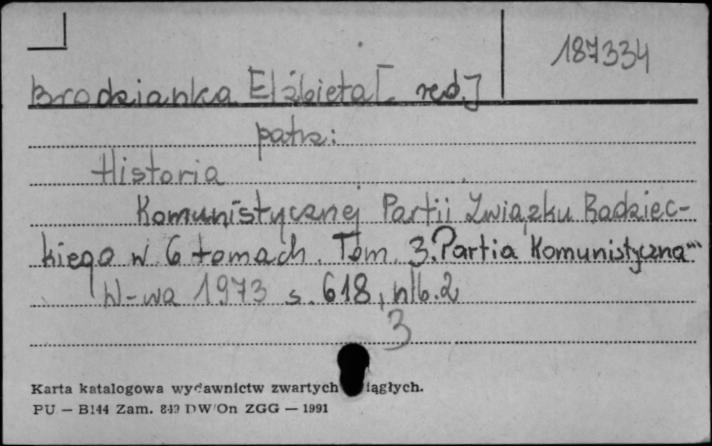 187334
Brodzianka Elżbieta [red.]
patrz:
Historia
Komunistycznej Partii Związku Radziec-
kiego w 6 tomach. Tom 3. Partia Komunistyczna...
W-wa 1973 s. 618, nlb. 2
3
Karta katalogowa wydawnictw zwartych ciągłych.
PU — B144 Zam. 849 DW/On ZGG — 1991